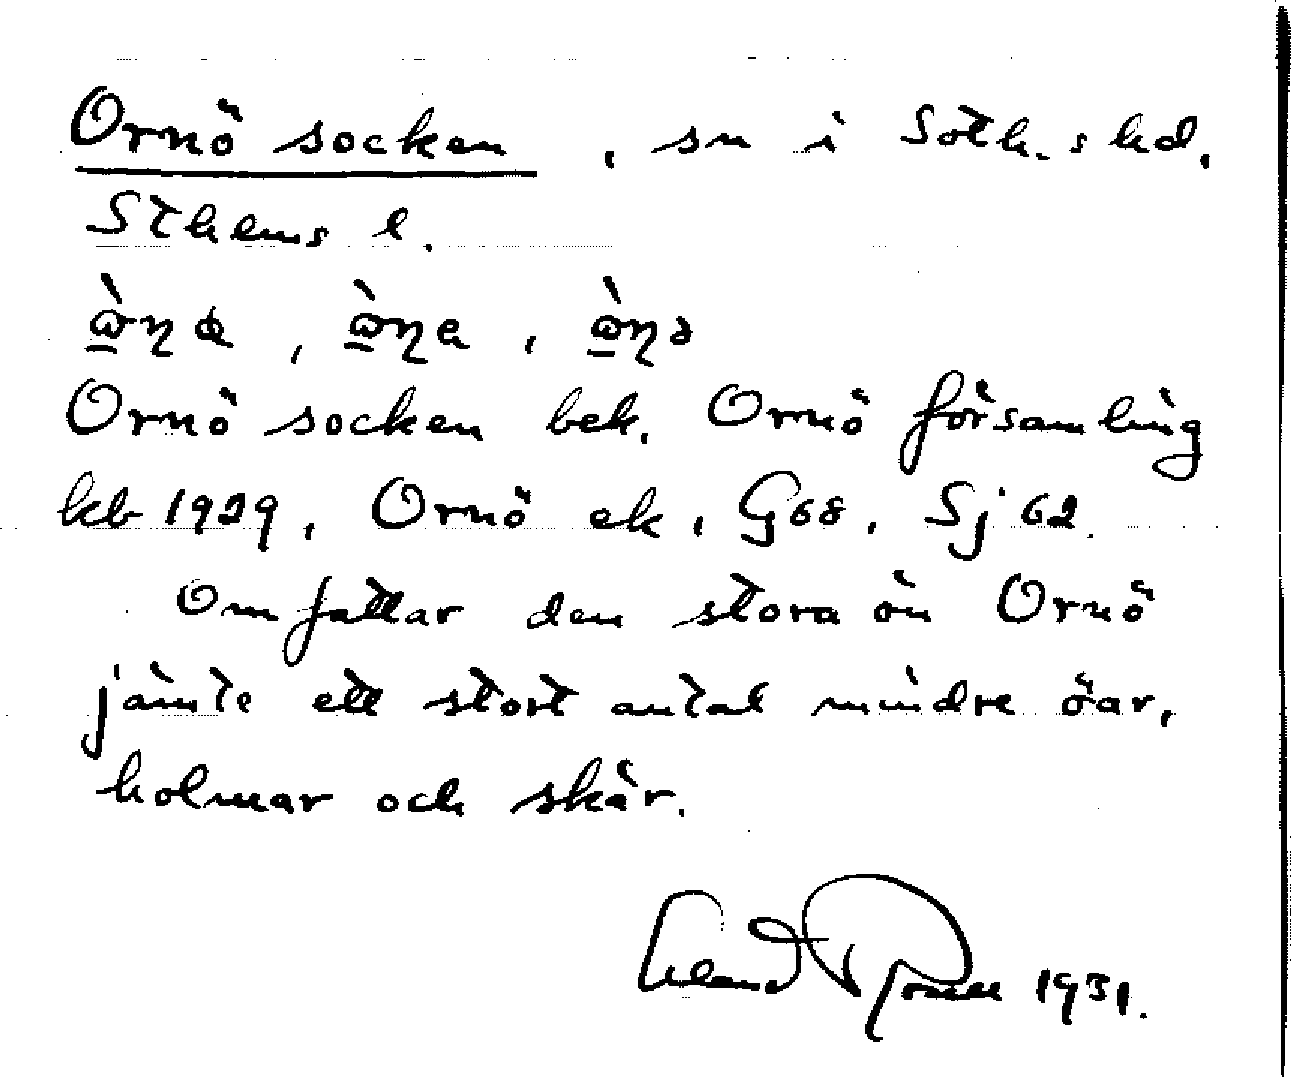 Ornö socken, sn i Soth.s hd,
Sthlms l.
Ornö socken bek. Ornö församling
kb 1929, Ornö ek, G68, Sj 62.
Omfattar den stora ön Ornö
jämte ett stort antal mindre öar,
holmar och skär.
1931.